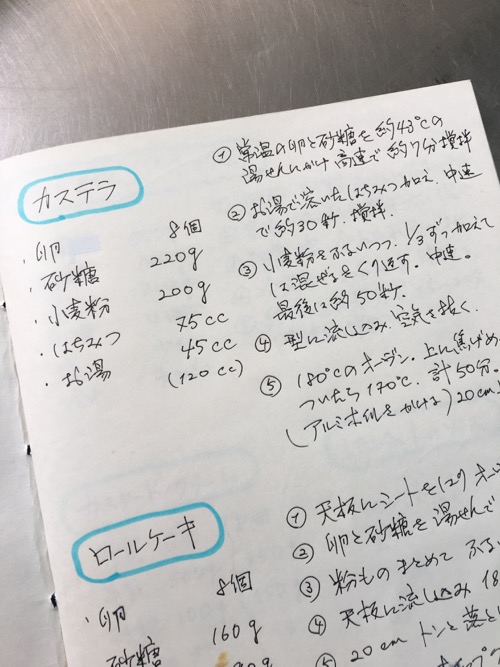 カステラ
・卵 8個
・砂糖 220g
・小麦粉 200g
・はちみつ 75cc
・お湯 45cc
(120cc)
① 常温の卵と砂糖を約43℃の
湯せんにかけ 高速で約7分撹拌
② お湯で溶いたはちみつ加え、中速
で約30秒、撹拌.
③ 小麦粉をふるいつつ、1/3ずつ加えて
は混ぜるをくり返す。中速。
最後は約50秒.
④ 型に流し込み、空気を抜く.
⑤ 180℃のオーブン。上に焦げめ
ついたら170℃. 計50分。
(アルミホイルをかける) 20cm
ロールケーキ
・卵 8個
砂糖 160g
① 天板にシートをはり オー
② 卵と砂糖を湯せんで
③ 粉ものまとめて ふる
④ 天板に流し込み 18
⑤ 20cm トンと落と